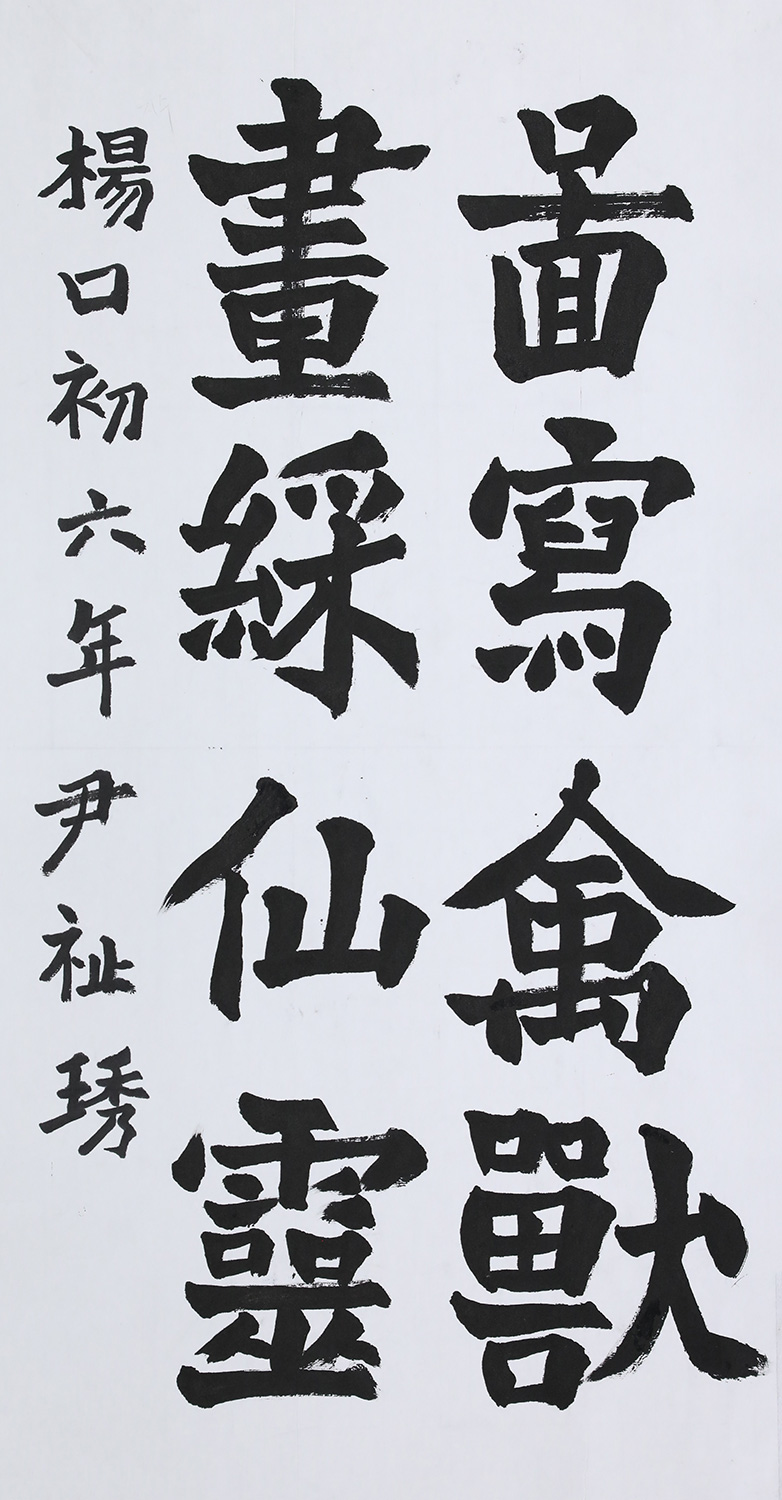 啚寫禽獸
畫綵仙靈
楊口初六年尹祉琇